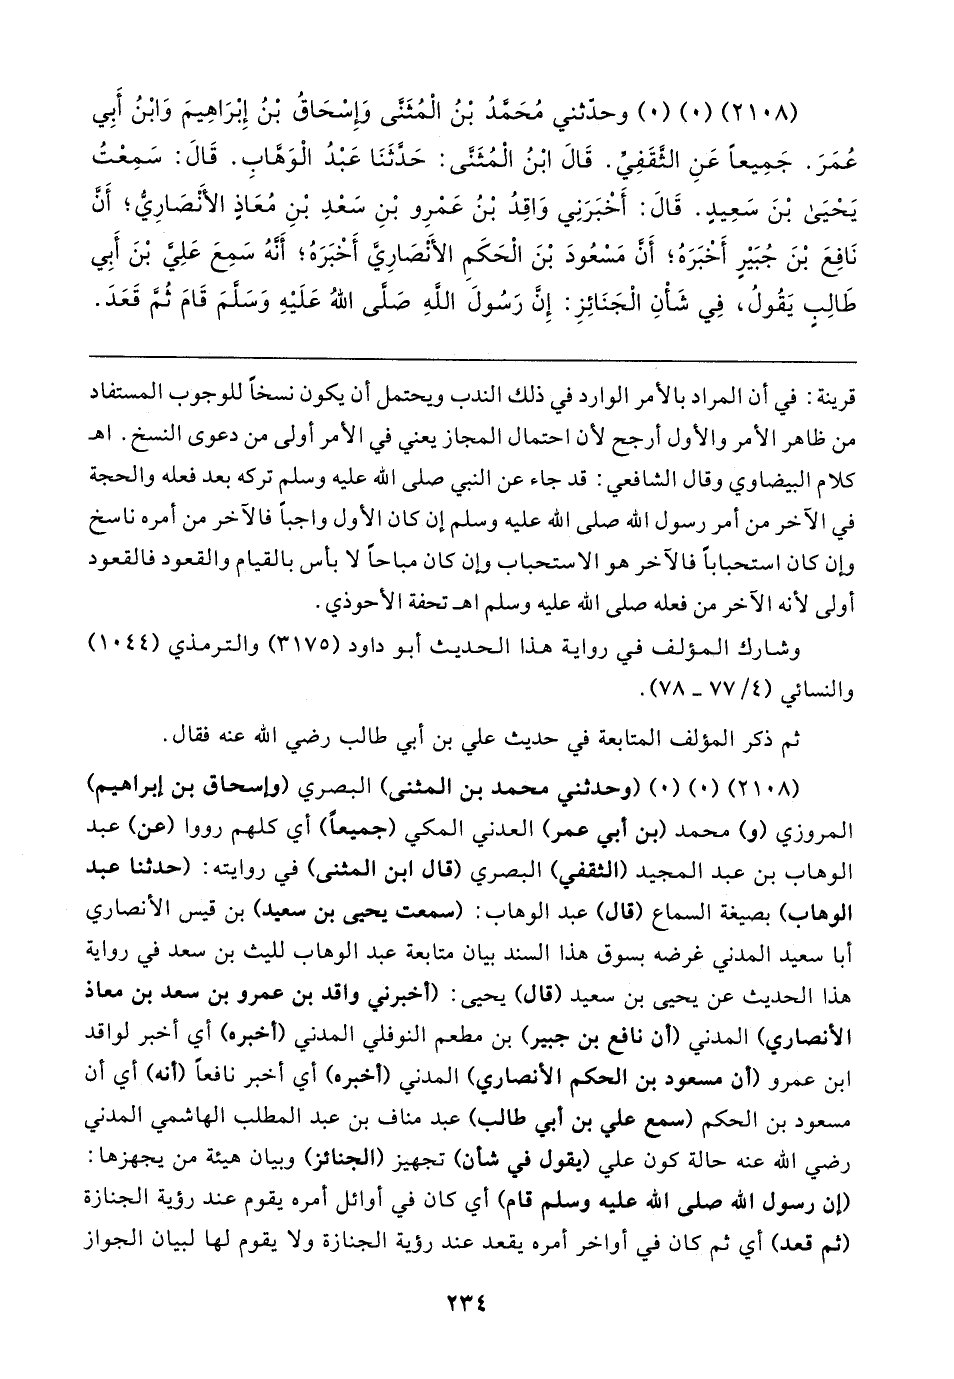 (٢١٠٨) (٠) (٠) وحدّثني مُحَمَّدُ بْنُ الْمُثَنَّى وَإِسْحَاقُ بْنُ إِبْرَاهِيمَ وَابْنُ أَبِي
عُمَرَ. جَمِيعاً عَنِ الثَّقَفِيِّ. قَالَ ابْنُ الْمُثَنَّى: حَدَّثَنَا عَبْدُ الْوَهَّابِ. قَالَ: سَمِعْتُ
يَحْيَىٰ بْنَ سَعِيدٍ. قَالَ: أَخْبَرَنِي وَاقِدُ بْنُ عَمْرِو بْنِ سَعْدِ بْنِ مُعَاذٍ الأَنْصَارِيُّ؛ أَنَّ
نَافِعَ بْنَ جُبَيْرٍ أَخْبَرَهُ؛ أَنَّ مَسْعُودَ بْنَ الْحَكَمِ الأَنْصَارِيَّ أَخْبَرَهُ؛ أَنَّهُ سَمِعَ عَلِيَّ بْنَ أَبِي
طَالِبٍ يَقُولُ، فِي شَأْنِ الْجَنَائِزِ: إِنَّ رَسُولَ اللَّهِ صَلَّى اللهُ عَلَيْهِ وَسَلَّمَ قَامَ ثُمَّ قَعَدَ.
قرينة: في أن المراد بالأمر الوارد في ذلك الندب ويحتمل أن يكون نسخاً للوجوب المستفاد
من ظاهر الأمر والأول أرجح لأن احتمال المجاز يعني في الأمر أولى من دعوى النسخ. اهـ
كلام البيضاوي وقال الشافعي: قد جاء عن النبي صلى الله عليه وسلم تركه بعد فعله والحجة
في الآخر من أمر رسول الله صلى الله عليه وسلم إن كان الأول واجباً فالآخر من أمره ناسخ
وإن كان استحباباً فالآخر هو الاستحباب وإن كان مباحاً لا بأس بالقيام والقعود فالقعود
أولى لأنه الآخر من فعله صلى الله عليه وسلم اهـ تحفة الأحوذي.
وشارك المؤلف في رواية هذا الحديث أبو داود (٣١٧٥) والترمذي (١٠٤٤)
والنسائي (٤/ ٧٧ ـ ٧٨).
ثم ذكر المؤلف المتابعة في حديث علي بن أبي طالب رضي الله عنه فقال.
(٢١٠٨) (٠) (٠) (وحدثني محمد بن المثنى) البصري (وإسحاق بن إبراهيم)
المروزي (و) محمد (بن أبي عمر) العدني المكي (جميعاً) أي كلهم رووا (عن) عبد
الوهاب بن عبد المجيد (الثقفي) البصري (قال ابن المثنى) في روايته: (حدثنا عبد
الوهاب) بصيغة السماع (قال) عبد الوهاب: (سمعت يحيى بن سعيد) بن قيس الأنصاري
أبا سعيد المدني غرضه بسوق هذا السند بيان متابعة عبد الوهاب لليث بن سعد في رواية
هذا الحديث عن يحيى بن سعيد (قال) يحيى: (أخبرني واقد بن عمرو بن سعد بن معاذ
الأنصاري) المدني (أن نافع بن جبير) بن مطعم النوفلي المدني (أخبره) أي أخبر لواقد
ابن عمرو (أن مسعود بن الحكم الأنصاري) المدني (أخبره) أي أخبر نافعاً (أنه) أي أن
مسعود بن الحكم (سمع علي بن أبي طالب) عبد مناف بن عبد المطلب الهاشمي المدني
رضي الله عنه حالة كون علي (يقول في شأن) تجهيز (الجنائز) وبيان هيئة من يجهزها:
(إن رسول الله صلى الله عليه وسلم قام) أي كان في أوائل أمره يقوم عند رؤية الجنازة
(ثم قعد) أي ثم كان في أواخر أمره يقعد عند رؤية الجنازة ولا يقوم لها لبيان الجواز
٢٣٤